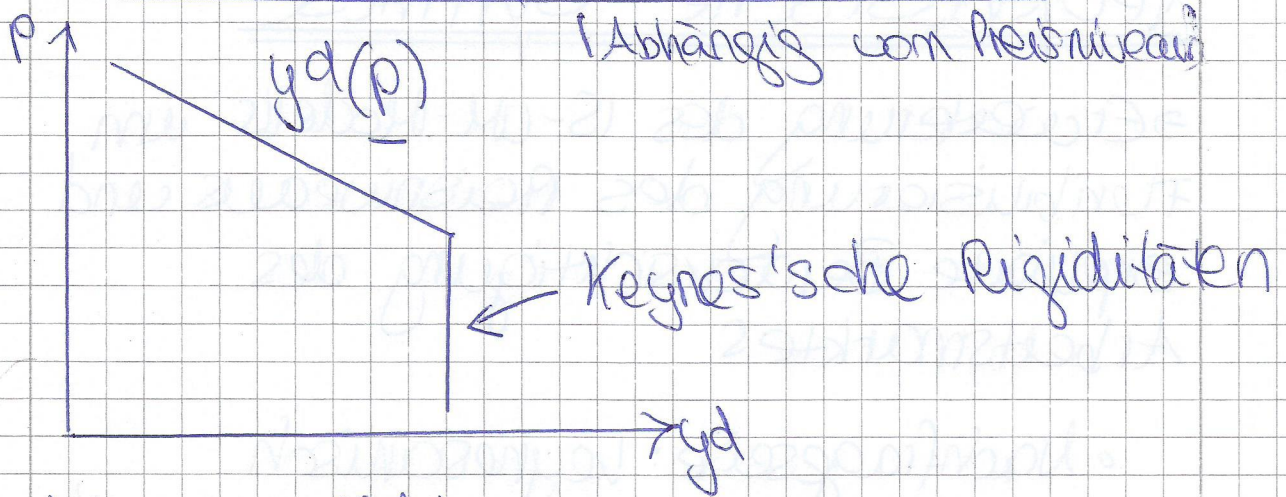 P
! Abhängig vom Preisniveau
yd(p)
Keynes'sche Rigiditäten
yd